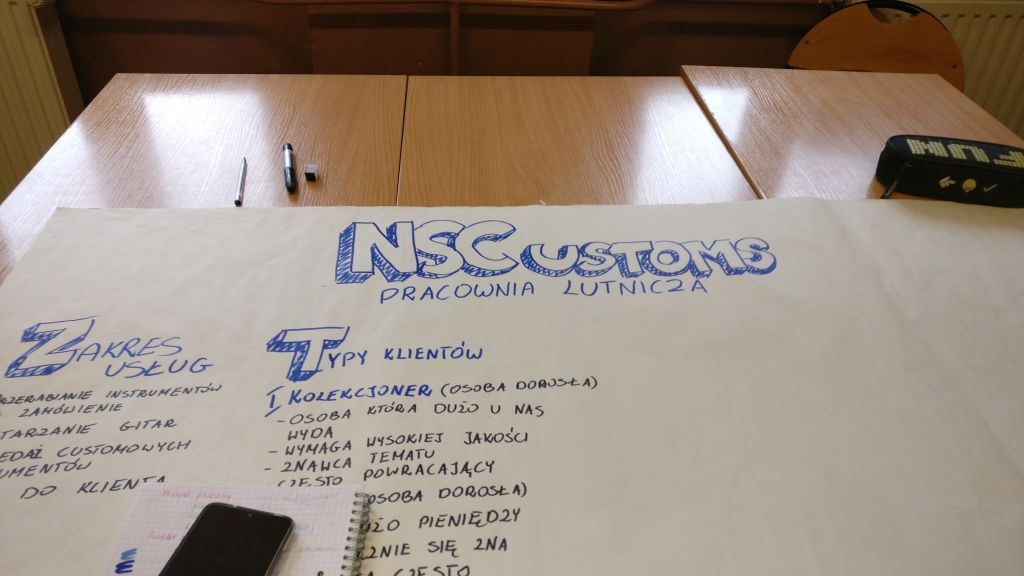 NSCUSTOMS
PRACOWNIA LUTNICZA
ZAKRES
USŁUG
PRZERABIANIE INSTRUMENTÓW
ZAMÓWIENIE
TARZANIE GITAR
EDAŻ CUSTOMOWYCH
UMENTÓW
DO KLIENTA
TYPY KLIENTÓW
I KOLEKCJONER (OSOBA DOROSŁA)
- OSOBA KTÓRA DUŻO U NAS
WYDA
- WYMAGA WYSOKIEJ JAKOŚCI
- ZNAWCA TEMATU
- CZĘSTO POWRACAJĄCY
(OSOBA DOROSŁA)
UŻO PIENIĘDZY
ZNIE SIĘ ZNA
CZĘSTO
FUN